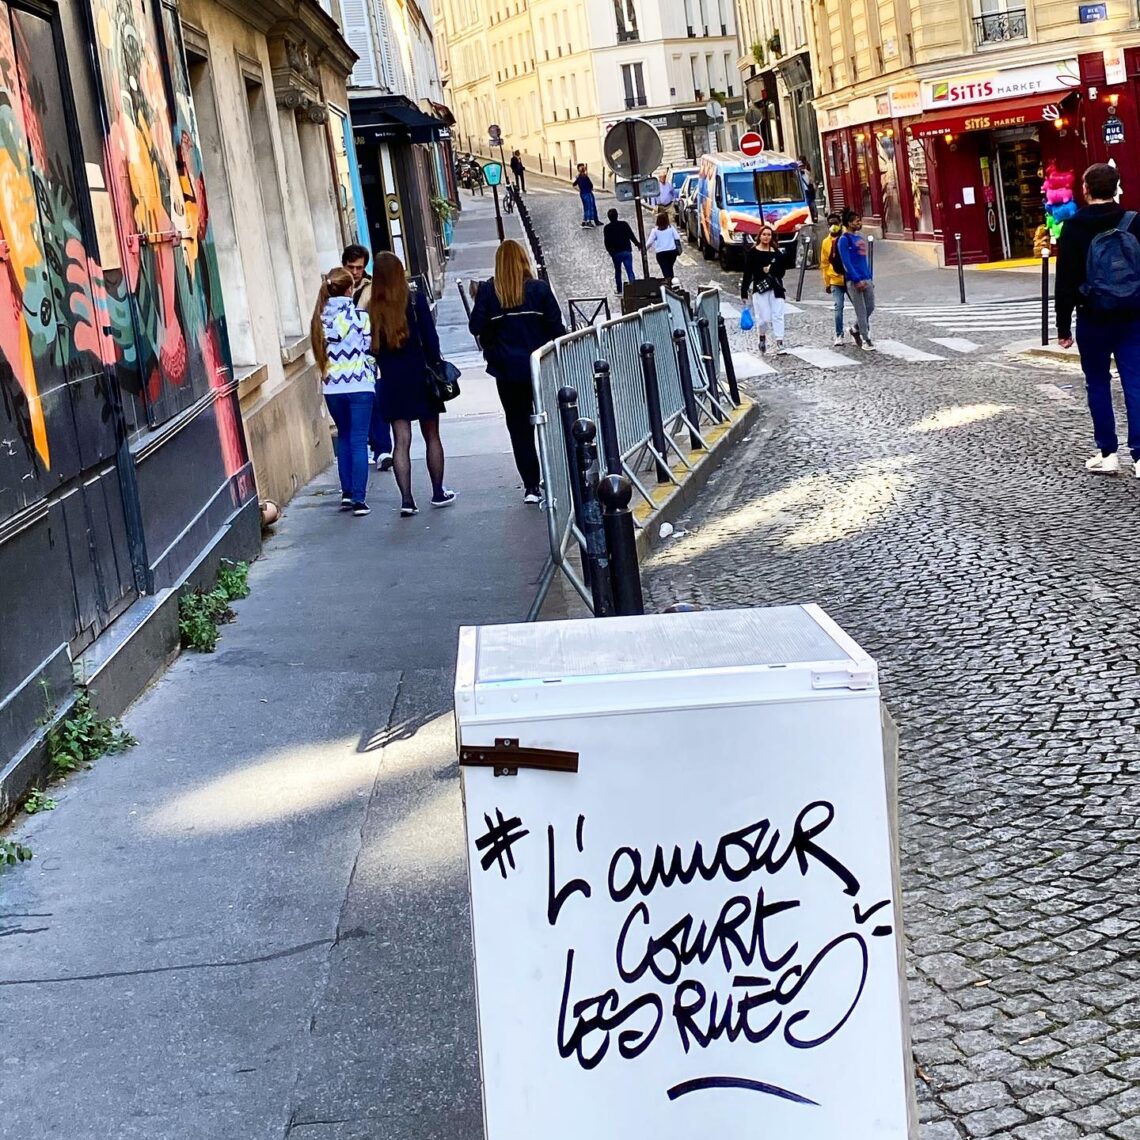 SiTiS MARKET
SiTiS MARKET
RUE
# L'amour
Court
Les Rues